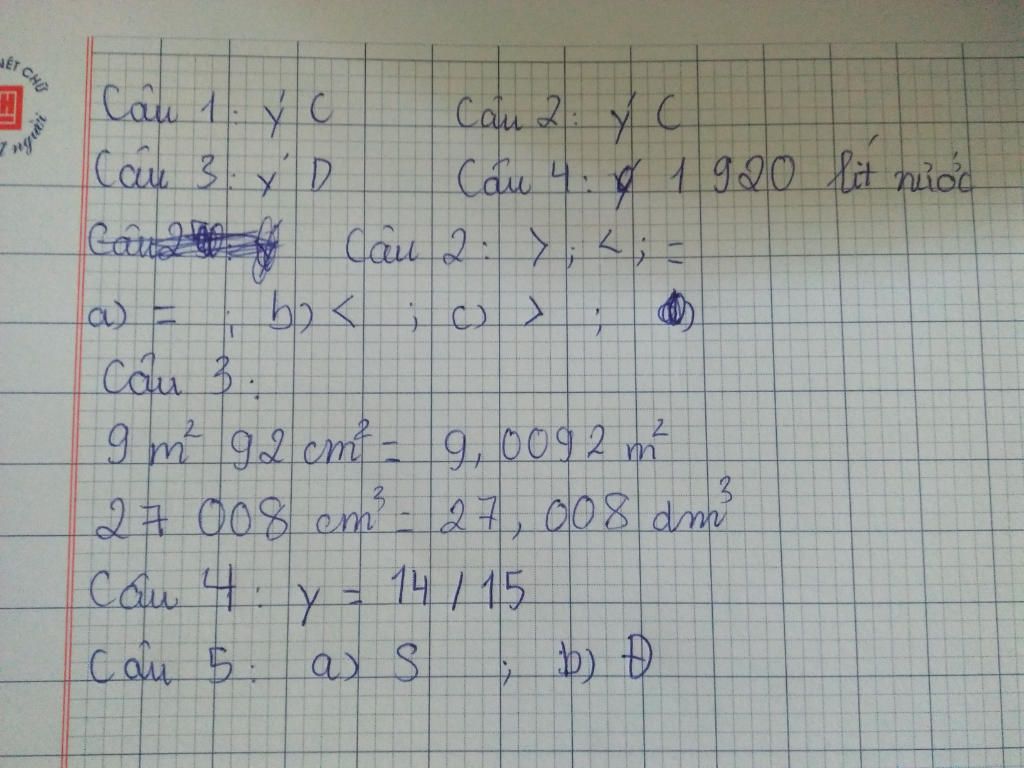 NÉT CHỮ
H
người
Câu 1: ý C Câu 2: ý C
Câu 3: ý D Câu 4: 1 920 lít nước
Câu 2: >; <; =
a) = ; b) < ; c) > ;
Câu 3:
9 m² 92 cm² = 9,0092 m²
27 008 cm³ = 27,008 dm³
Câu 4: y = 14/15
Câu 5: a) S ; b) Đ